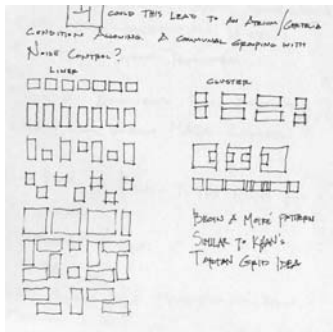 COULD THIS LEAD TO AN ATRIUM/
CONDITION ALLOWING A COMMUNAL GROUPING WITH
NOISE CONTROL?
LINEAR
CLUSTER
BEGIN A MORE PATTERN
SIMILAR TO KAHN'S
TARTAN GRID IDEA